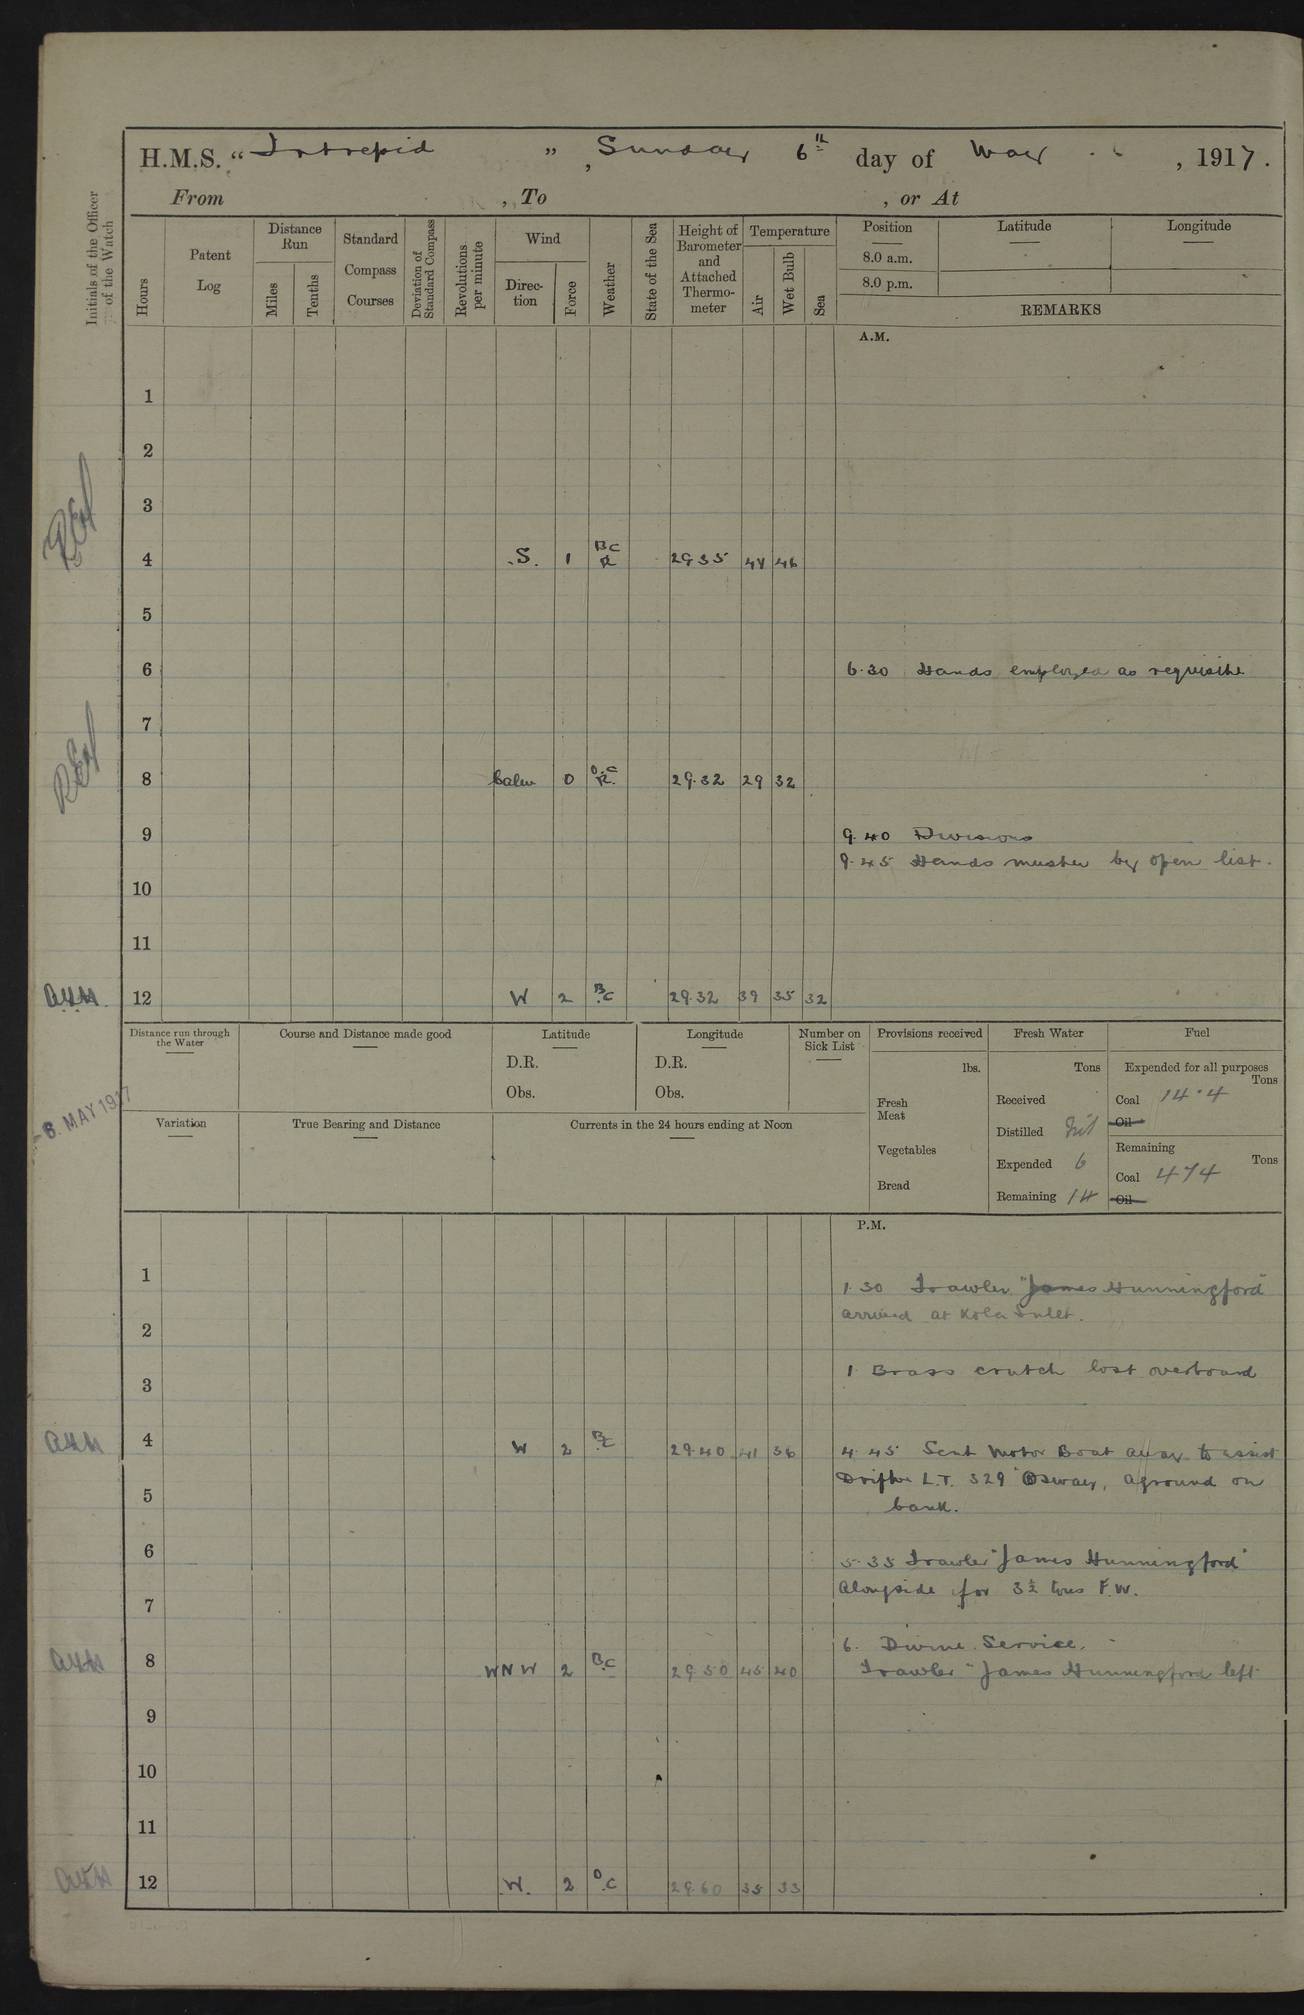 H.M.S. "Intrepid", Sunday 6th day of May, 1917.
From , To , or At
Initials of the Officer of the Watch
Hours
Patent Log
Distance Run
Miles
Tenths
Standard Compass Courses
Deviation of Standard Compass
Revolutions per minute
Wind
Direction
Force
Weather
State of the Sea
Height of Barometer and Attached Thermometer
Temperature
Air
Wet Bulb
Sea
Position
8.0 a.m.
8.0 p.m.
Latitude
Longitude
REMARKS
A.M.
1
2
3
4 S. 1 BC R 29.35 46
5
6 6.30 Hands employed as requisite
7
8 Calm 0 O.C R. 29.32 29 32
9 9.40 Divisions
9.45 Hands muster by open list.
10
11
12 W 2 BC 29.32 39 35 32
Distance run through the Water
Course and Distance made good
Latitude
D.R.
Obs.
Longitude
D.R.
Obs.
Number on Sick List
Provisions received
lbs.
Fresh Meat
Vegetables
Bread
Fresh Water
Tons
Received
Distilled Nil
Expended 6
Remaining 14
Fuel
Expended for all purposes
Tons
Coal 14.4
Oil
Remaining
Tons
Coal 474
Oil
6. MAY 1917
Variation
True Bearing and Distance
Currents in the 24 hours ending at Noon
P.M.
1 1.30 Trawler "James Hunningford"
arrived at Kola Inlet.
2
1 Brass crutch lost overboard
3
4 W 2 BC 29.40 41 36 4.45 Sent Motor Boat away to assist
Drifter L.T. 329 Osway, aground on
5 bank.
6 5.35 Trawler "James Hunningford"
alongside for 3½ tons F.W.
7
6. Divine Service.
8 WNW 2 BC 29.50 45 40 Trawler "James Hunningford left
9
10
11
12 W. 2 OC 29.60 35 33